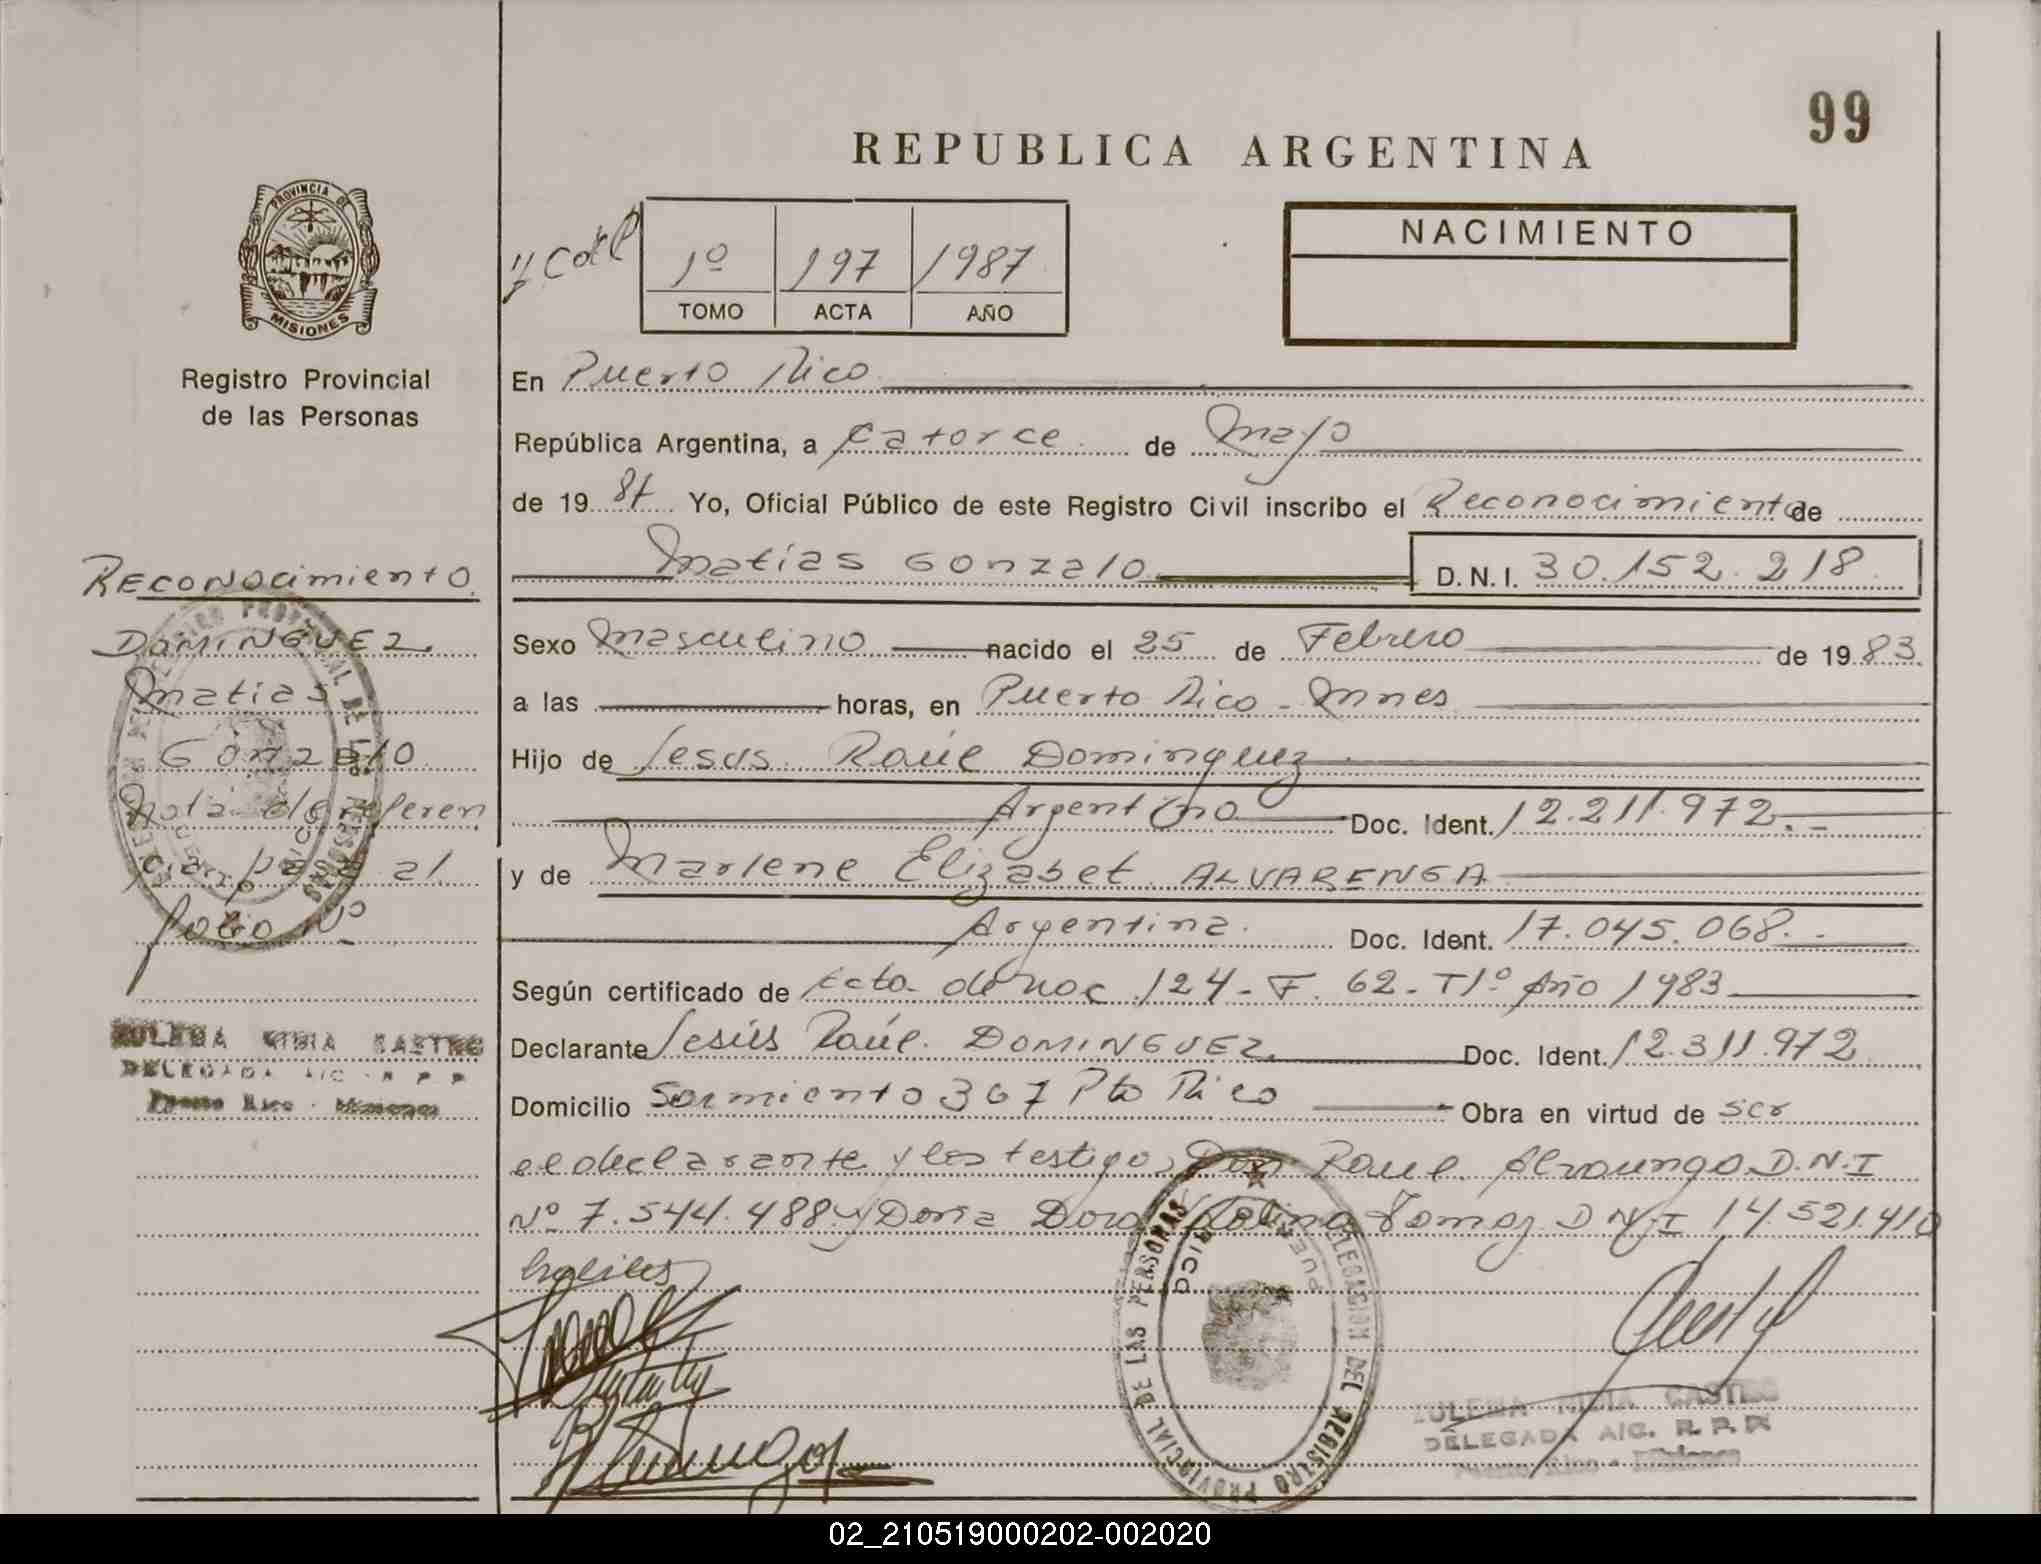 99
REPUBLICA ARGENTINA
PROVINCIA DE
MISIONES
Registro Provincial
de las Personas
1º 197 1987
TOMO ACTA AÑO
NACIMIENTO
En Puerto Rico
República Argentina, a catorce de Mayo
de 19 87 Yo, Oficial Público de este Registro Civil inscribo el Reconocimiento de
Matias Gonzalo D.N.I. 30.152.218
Sexo Masculino nacido el 25 de Febrero de 19 83
a las horas, en Puerto Rico - Mnes
Hijo de Jesus Raúl Dominguez
Argentino Doc. Ident. 12.211.972.-
y de Marlene Elizabet ALVARENGA
Argentina. Doc. Ident. 17.045.068.-
Según certificado de acta de nac 124 - F. 62 - T1º Año 1983
Declarante Jesús Raúl. DOMINGUEZ Doc. Ident. 12.311.972
Domicilio Sarmiento 367 Pto Rico Obra en virtud de ser
el declarante y los testigos Don Raul Alvarenga D.N.I
Nº 7.544.488 y Doña Dora D.N.I 14.521.410
habiles
RECONOCIMIENTO
DOMINGUEZ
Matias
Gonzalo
Nota de referen
cia para al
folio Nº
ZULEMA NIDIA CASTRO
DELEGADA A/C R P P
Puerto Rico - Misiones
DELEGACION DEL REGISTRO PROVINCIAL DE LAS PERSONAS
PUERTO RICO
DELEGACION DEL REGISTRO PROVINCIAL DE LAS PERSONAS
PUERTO RICO
ZULEMA NIDIA CASTRO
DELEGADA A/C. R. P. P.
Puerto Rico - Misiones
02_210519000202-002020